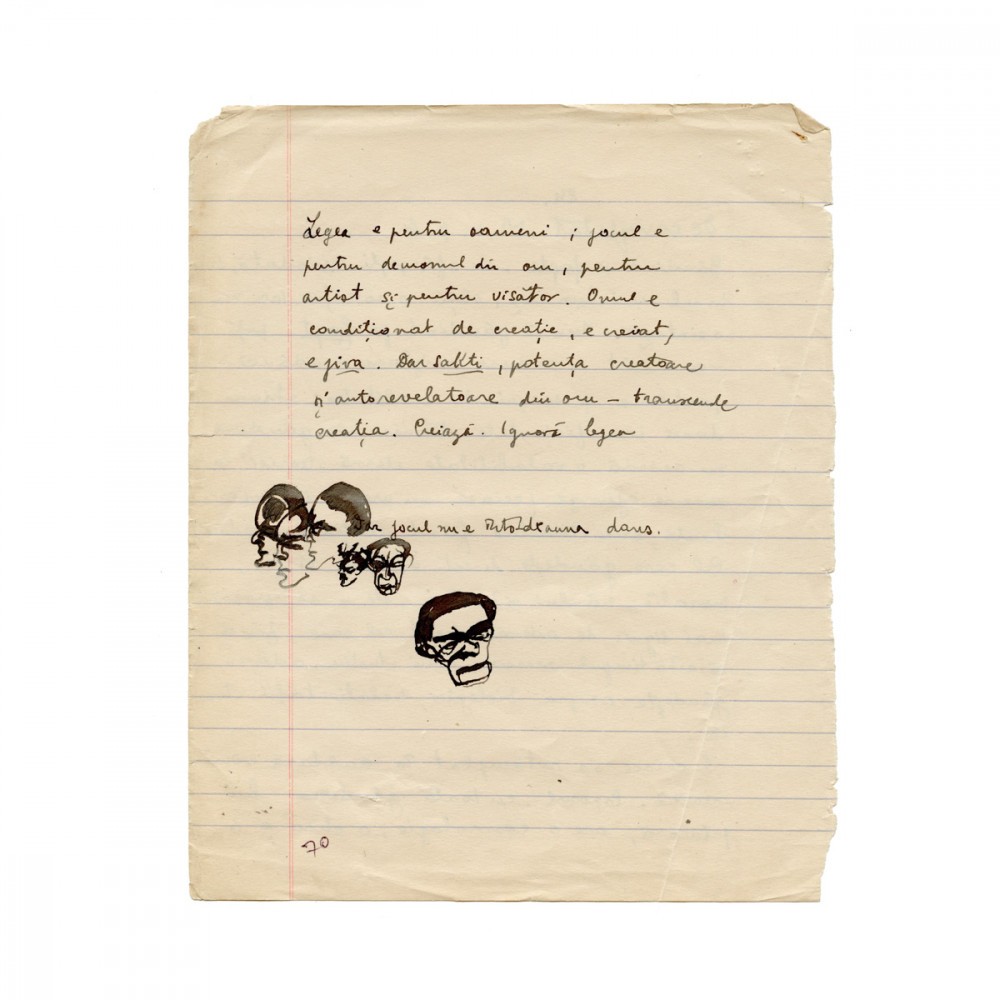 Legea e pentru oameni ; jocul e
pentru demonul din om, pentru
artist și pentru visător. Omul e
condiționat de creație, e creiat,
e jiva. Dar sakti, potența creatoare
și autorevelatoare din om – transcende
creația. Creiază. Ignoră legea
Dar jocul nu e întotdeauna dans.
70